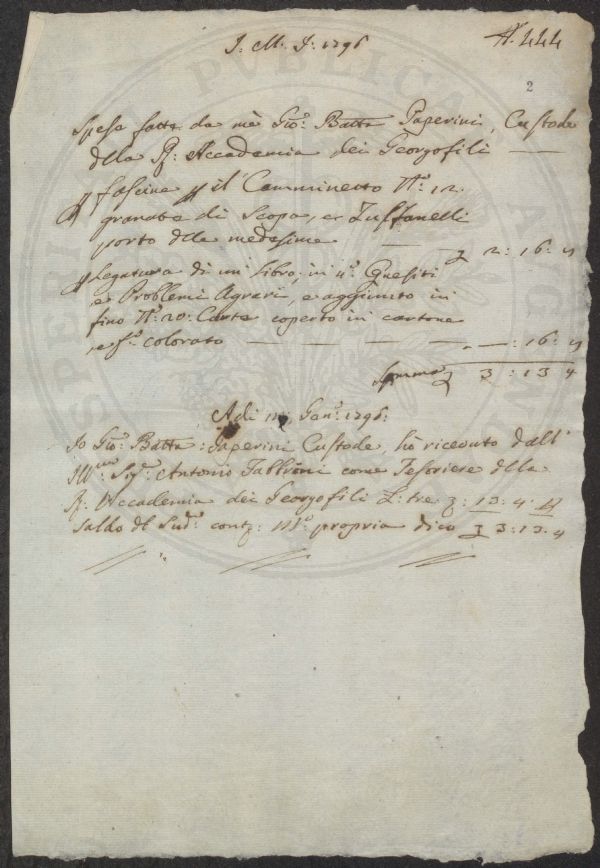 J. M. J. 1796
N.° 444
2
Spese fatte da mè Gio: Batta Paperini, Custode
dlla R: Accademia dei Georgofili
p fascine p il Camminetto N.° 12.
granate di Scopa, e Zuffanelli
porto dlle medesime 2: 16: 
p legatura di un libro, in 4.° Quesiti
e Problemi Agrari, e aggiunto in
fine N.° 20: Carte coperto in cartone
e f.° colorato — : 16: 
Somma 3: 13 4
Adi Gen.° 1796:
Io Gio: Batta: Paperini Custode, hò ricevuto dall'
Ill.mo Sig.r Antonio Fabbroni come Tesoriere dlla
R: Accademia dei Georgofili L: tre 13: 4 p
saldo dl Sud.° conto: M.° propria dico 3: 13: 4